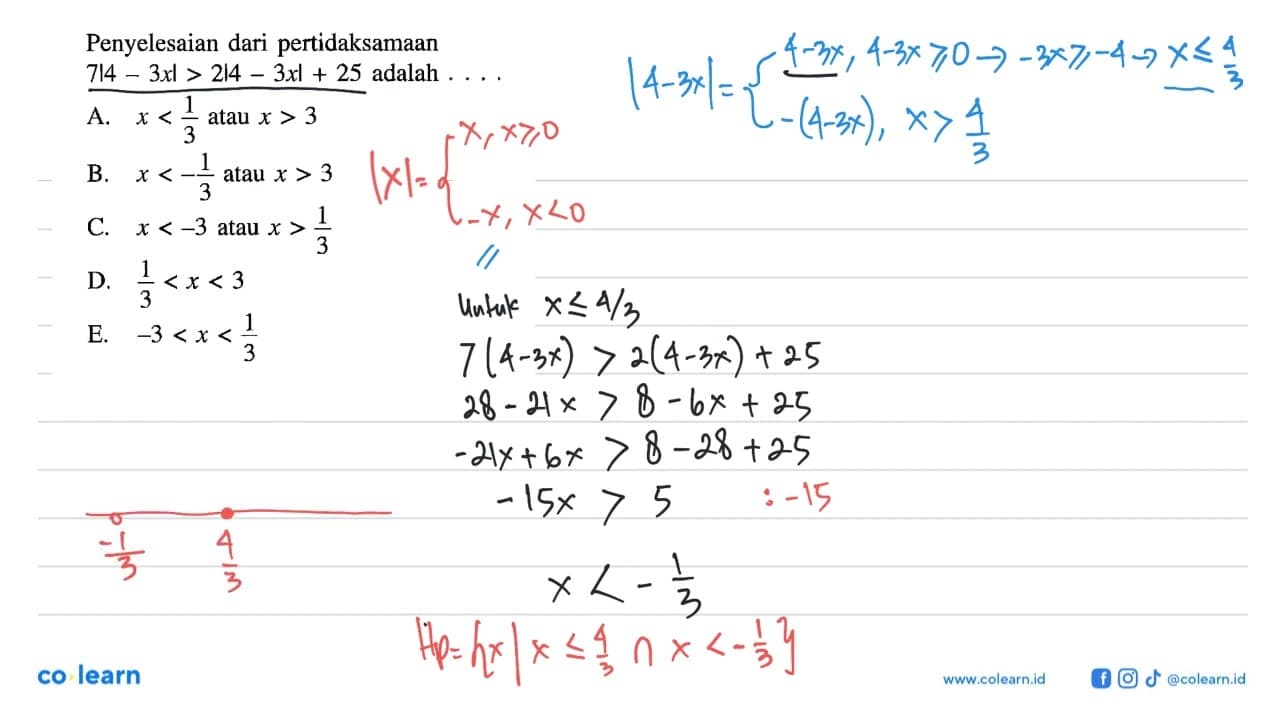 Penyelesaian dari pertidaksamaan
7|4 – 3x| > 2|4 – 3x| + 25 adalah . . . .
A. x < 1/3 atau x > 3
B. x < –1/3 atau x > 3
C. x < –3 atau x > 1/3
D. 1/3 < x < 3
E. –3 < x < 1/3
|4-3x| = { 4-3x, 4-3x ≥ 0 → -3x ≥ -4 → x ≤ 4/3
-(4-3x), x > 4/3
|x| = { x, x ≥ 0
-x, x < 0
//
Untuk x ≤ 4/3
7(4-3x) > 2(4-3x) + 25
28 - 21x > 8 - 6x + 25
-21x + 6x > 8 - 28 + 25
-15x > 5 : -15
x < -1/3
-1/3 4/3
Hp = {x | x ≤ 4/3 ∩ x < -1/3}
co learn
www.colearn.id
@colearn.id